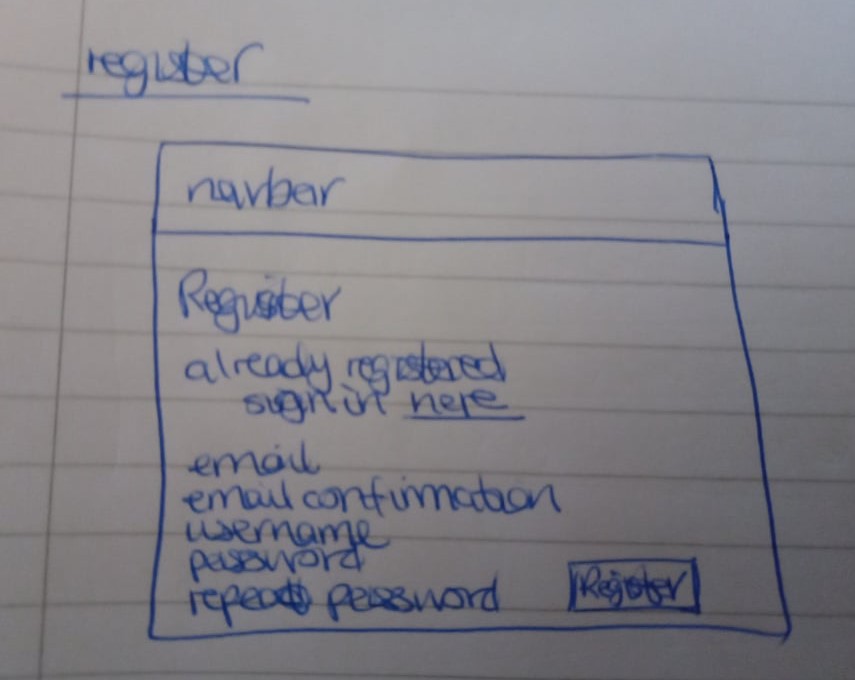 register
navbar
Register
already registered
sign in here
email
email confirmation
username
password
repeat password
Register